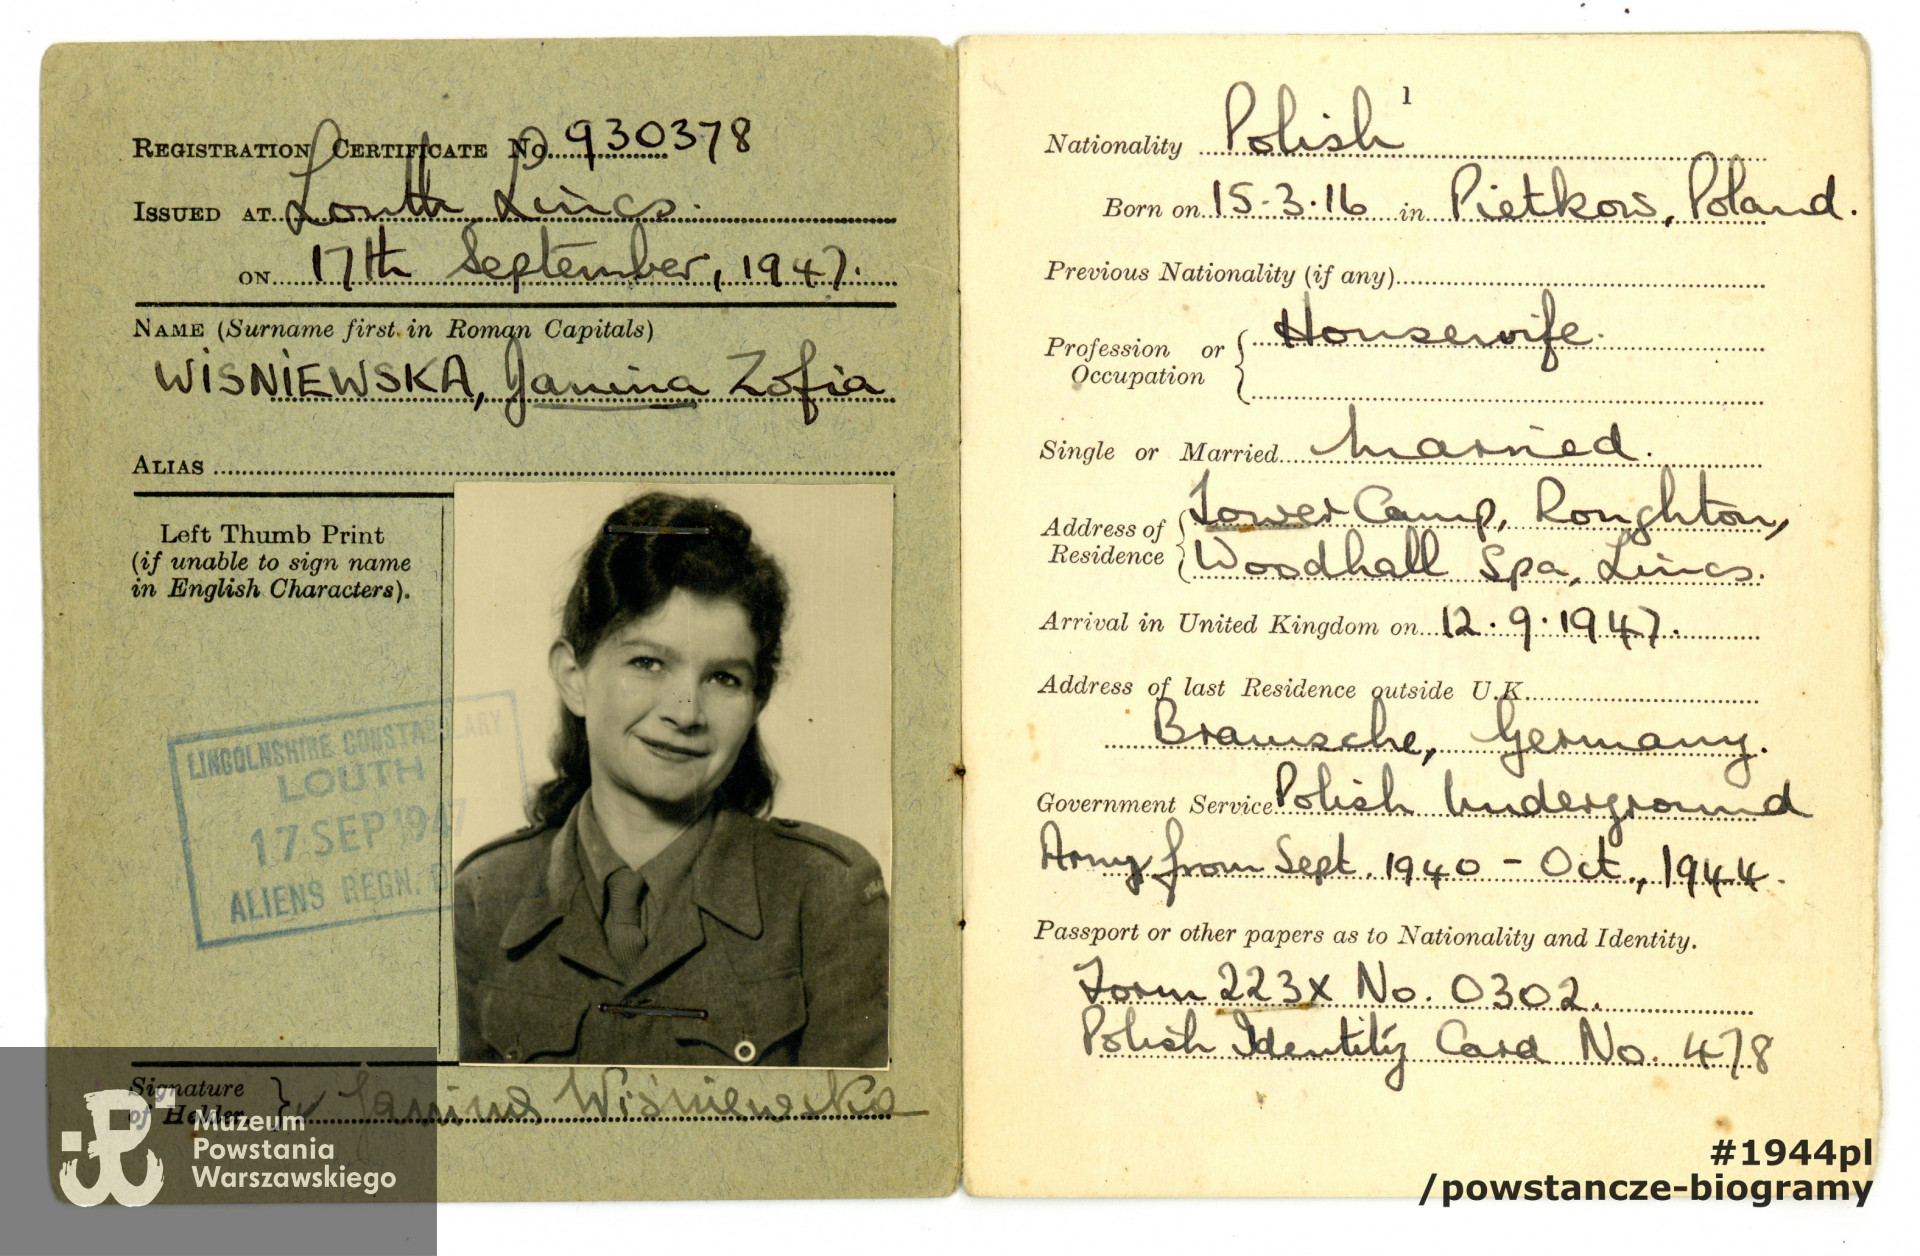 REGISTRATION CERTIFICATE No. 930378
ISSUED AT Louth, Lincs.
ON 17th September, 1947.
NAME (Surname first in Roman Capitals)
WISNIEWSKA, Janina Zofia
ALIAS
Left Thumb Print
(if unable to sign name
in English Characters).
LINCOLNSHIRE CONSTABULARY
LOUTH
17 SEP 1947
ALIENS REGN. D
Signature
of Holder } Janina Wiśniewska
Muzeum
Powstania
Warszawskiego
1
Nationality Polish
Born on 15.3.16 in Pietkow, Poland.
Previous Nationality (if any)
Profession or Occupation { Housewife.
Single or Married Married.
Address of Residence { Tower Camp, Roughton,
Woodhall Spa, Lincs.
Arrival in United Kingdom on 12.9.1947.
Address of last Residence outside U.K.
Bramsche, Germany.
Government Service Polish Underground
Army from Sept. 1940 - Oct., 1944.
Passport or other papers as to Nationality and Identity.
Form 223X No. 0302.
Polish Identity Card No. 478
#1944pl
/powstancze-biogramy